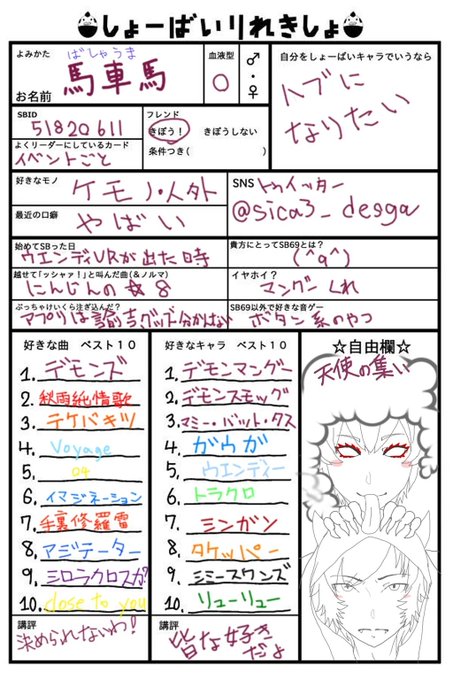 しょーばいりれきしょ
よみかた
ばしゃうま
お名前
馬車馬
血液型
○
♂・♀
自分をしょーばいキャラでいうなら
ハブに
なりたい
SBID
51820611
フレンド
きぼう! きぼうしない
条件つき( )
よくリーダーにしているカード
イベントごと
好きなモノ
ケモノ・人外
最近の口癖
やばい
SNS トゥイッター
@sica3_desga
始めてSBった日
ウエンディURが出た時
貴方にとってSB69とは?
(^q^)
越せて「ッシャァ!」と叫んだ曲(&ノルマ)
にんじんの☆8
イヤホイ?
マングー くれ
ぶっちゃけいくら注ぎ込んだ?
アプリは諭吉グッズ分かんない
SB69以外で好きな音ゲー
ボタン系のやつ
好きな曲 ベスト10
1. デモンズ
2. 秋雨純情歌
3. テケバキツ
4. Voyage
5. 04
6. イマジネーション
7. 手裏修羅雷
8. アジテーター
9. ミロラクロスカ?
10. close to you
講評
決められないわ!
好きなキャラ ベスト10
1. デモンマングー
2. デモンスモッグ
3. マミー・バット・タス
4. ガウガ
5. ウエンディー
6. トラクロ
7. ミンガン
8. タケッパー
9. シミースワンズ
10. リューリュー
講評
皆な好き
だよ
☆自由欄☆
天使の集い